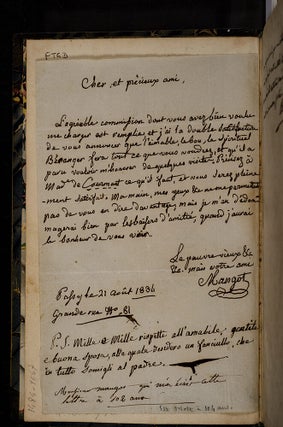 Cher, et précieux ami,
L'agréable commission dont vous avez bien voulu
me charger est remplie; et j'ai la double satisfaction
de vous annoncer que l'aimable, le bon, le spirituel
Béranger fera tout ce que vous voudrez, et qu'il a
paru vouloir m'honorer de quelques visites. Priez
Mad.e de qu'il fait, et nous serez pleine
ment satisfait. Ma main, mes yeux &c ne me permettent
pas de vous en dire davantage, mais je m'en dédom
magerai bien par les baisers d'amitié, quand j'aurai
le bonheur de vous voir.
Le pauvre vieux &c
&c. mais votre ami
Mangot
Passy le 21 Août 1834
Grande rue N.o 81
P. S. Mille e Mille rispetti all'amabile, gentile
e buona sposa, alla quale desidero un fanciullo, che
in tutto somigli al padre.
Monsieur mangot qui m'a écrit cette
lettre à 102 ans